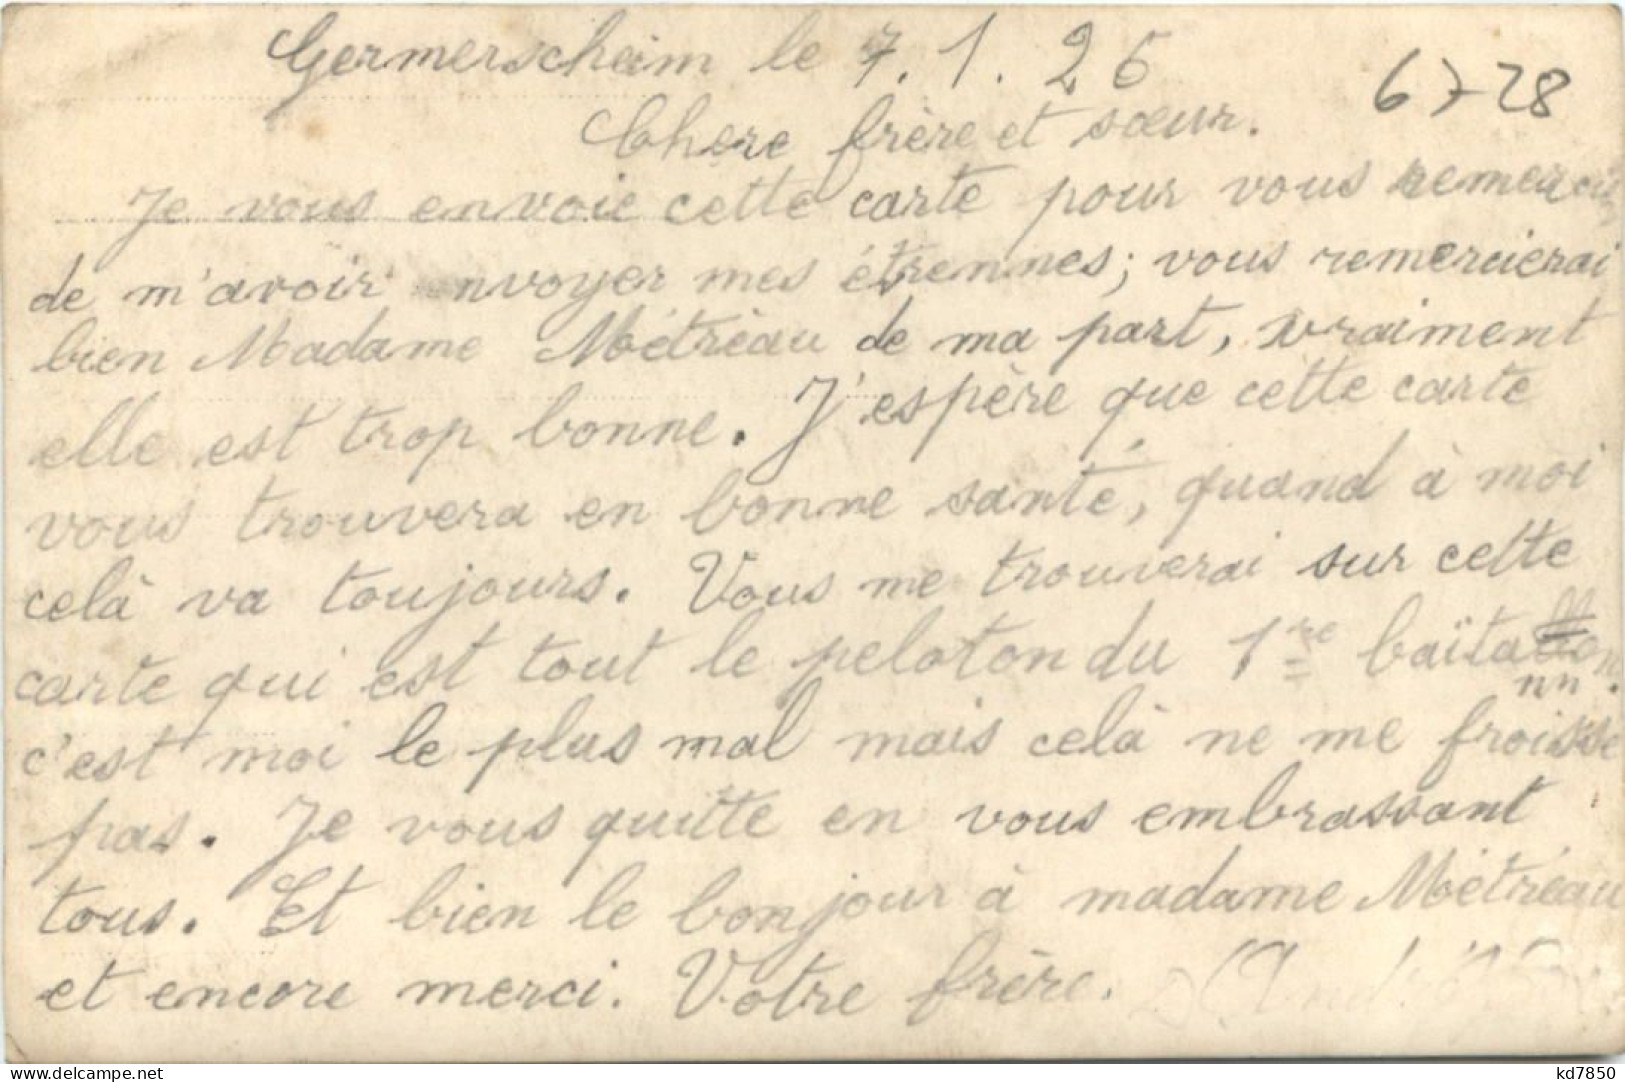 Germerscheim le 7.1.26
67-28
Chere frère et sœur.
Je vous envoie cette carte pour vous remercier
de m'avoir nvoyer mes étrennes; vous remercierai
bien Madame Métréau de ma part, vraiment
elle est trop bonne. J'espère que cette carte
vous trouvera en bonne santé, quand à moi
celà va toujours. Vous me trouverai sur cette
carte qui est tout le peloton du 1re
c'est moi le plus mal mais celà ne me froisse
pas. Je vous quitte en vous embrassant
tous. Et bien le bonjour à madame Métréau
et encore merci. Votre frère.
www.delcampe.net
kd7850